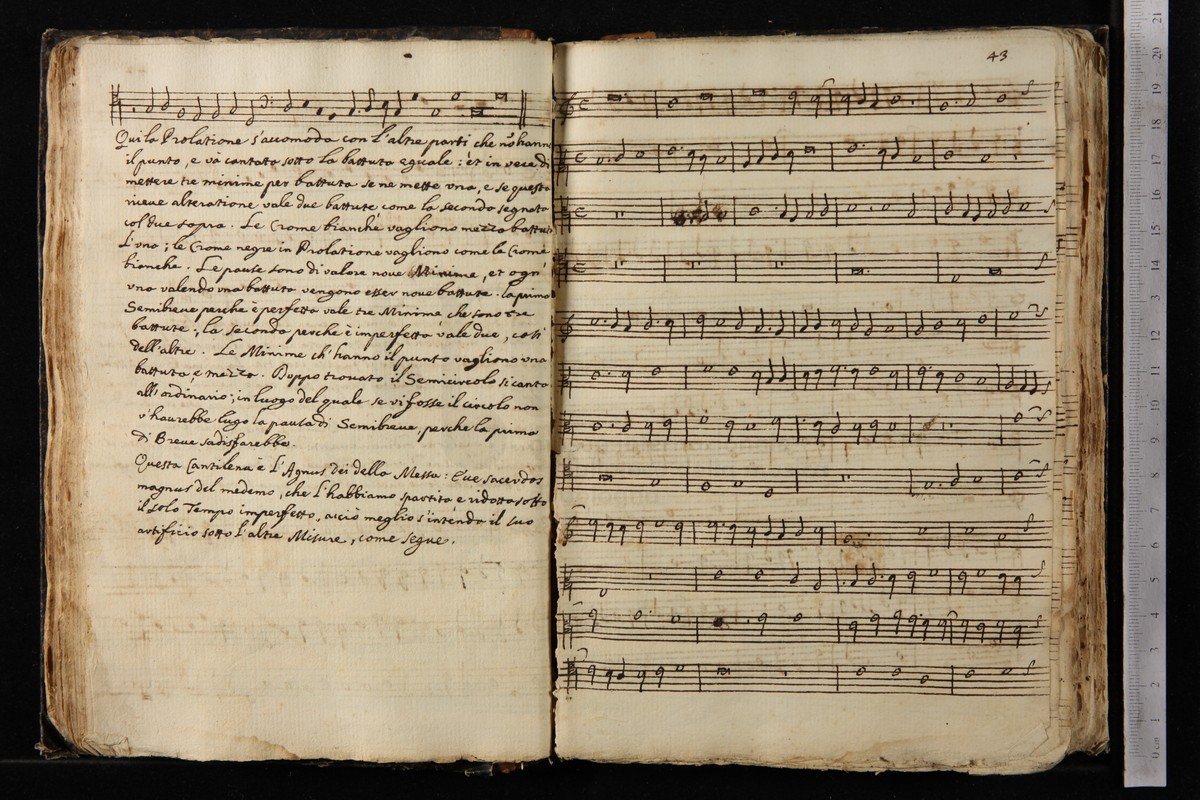 Qui la Prolatione s'accomoda con l'altre parti che nõ hann
il punto, e và cantata sotto la battuta eguale: et in vece di
mettere tre minime per battuta se ne mette vna, e se questa
riceue alteratione vale due battute come la seconda segnata
col due sopra. Le Crome bianche vagliono mezza battut
l'vna; le Crome negre in Prolatione vagliono come le Crome
bianche. Le pause sono di valore noue Minime, et ogn'
vna valendo vna battuta vengono esser noue battute. la prima
Semibreue perche è perfetta vale tre Minime che sono tre
battute; la seconda perche è imperfetta vale due, così
dell'altre. Le Minime ch'hanno il punto vagliono vna
battuta e mezza. Doppo trouato il Semicircolo si canta
all'ordinario; in luogo del quale se vi fosse il circolo non
v'haurebbe lugo la pausa di Semibreue, perche la prima
di Breue sadisfarebbe.
Questa Cantilena è l'Agnus Dei della Messa: Ecce sacerdos
magnus del medemo, che l'habbiamo spartita e ridotta sotto
il solo Tempo imperfetto, acciò meglio s'intenda il suo
artificio sotto l'altre Misure, come segue.
43